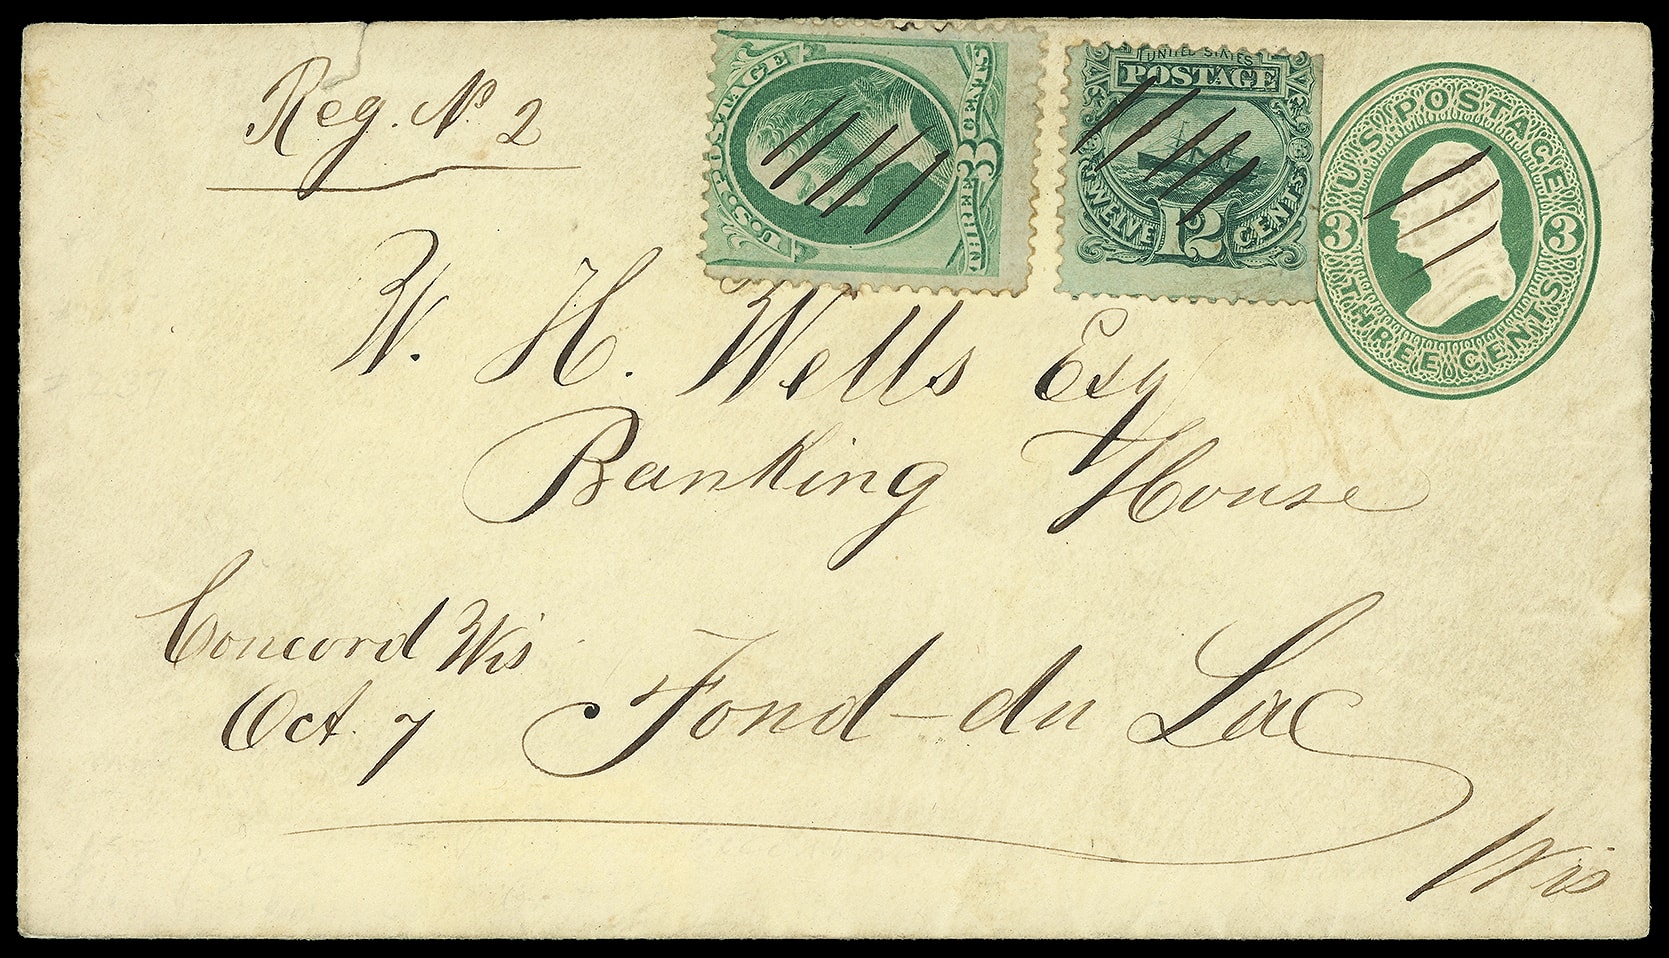 Reg. No. 2
U.S. POSTAGE
3
UNITED STATES
POSTAGE
TWELVE 12 CENTS
U.S. POSTAGE
3 3
THREE CENTS
W. H. Wells Esq
Banking House
Concord Wis
Oct. 7
Fond-du Lac
Wis